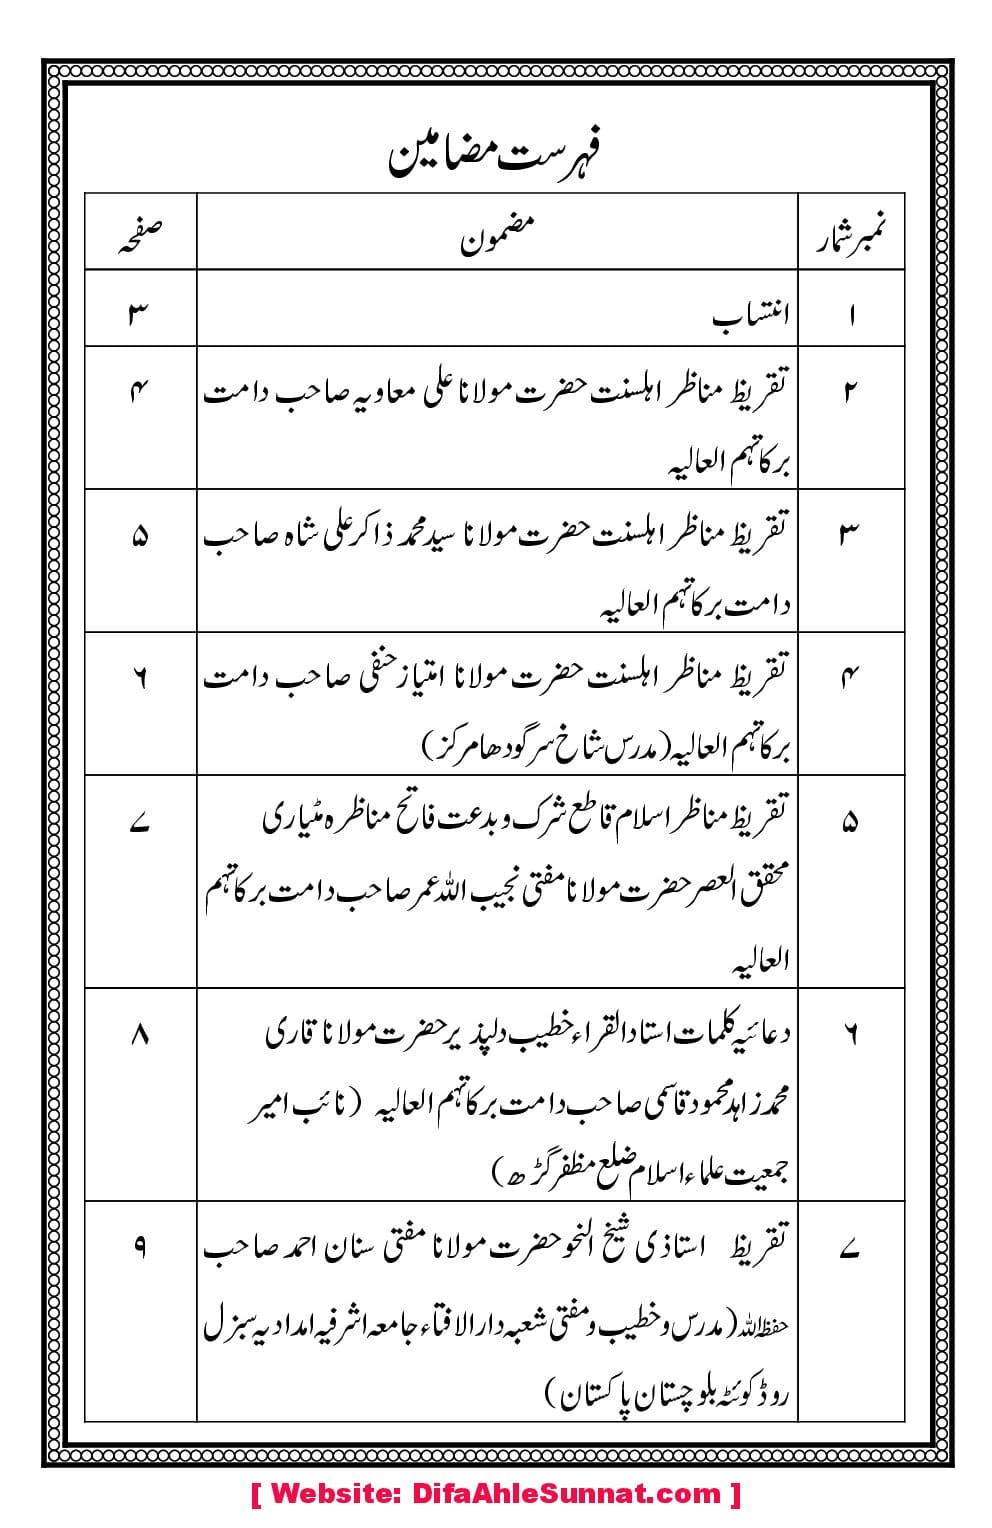 فہرست مضامین
نمبر شمار مضمون صفحہ
۱ انتساب ۳
۲ تقریظ مناظر اہلسنت حضرت مولانا علی معاویہ صاحب دامت ۴
برکاتہم العالیہ
۳ تقریظ مناظر اہلسنت حضرت مولانا سید محمد ذاکر علی شاہ صاحب ۵
دامت برکاتہم العالیہ
۴ تقریظ مناظر اہلسنت حضرت مولانا امتیاز حنفی صاحب دامت ۶
برکاتہم العالیہ (مدرس شاخ سرگودھا مرکز)
۵ تقریظ مناظر اسلام قاطع شرک و بدعت فاتح مناظرہ مٹیاری ۷
محقق العصر حضرت مولانا مفتی نجیب اللہ عمر صاحب دامت برکاتہم
العالیہ
۶ دعائیہ کلمات استاد القراء خطیب دلپذیر حضرت مولانا قاری ۸
محمد زاہد محمود قاسمی صاحب دامت برکاتہم العالیہ (نائب امیر
جمعیت علماء اسلام ضلع مظفر گڑھ)
۷ تقریظ استاذی شیخ النحو حضرت مولانا مفتی سنان احمد صاحب ۹
حفظہ اللہ (مدرس و خطیب و مفتی شعبہ دارالافتاء جامعہ اشرفیہ امدادیہ سبزل
روڈ کوئٹہ بلوچستان پاکستان)
[ Website: DifaAhleSunnat.com ]